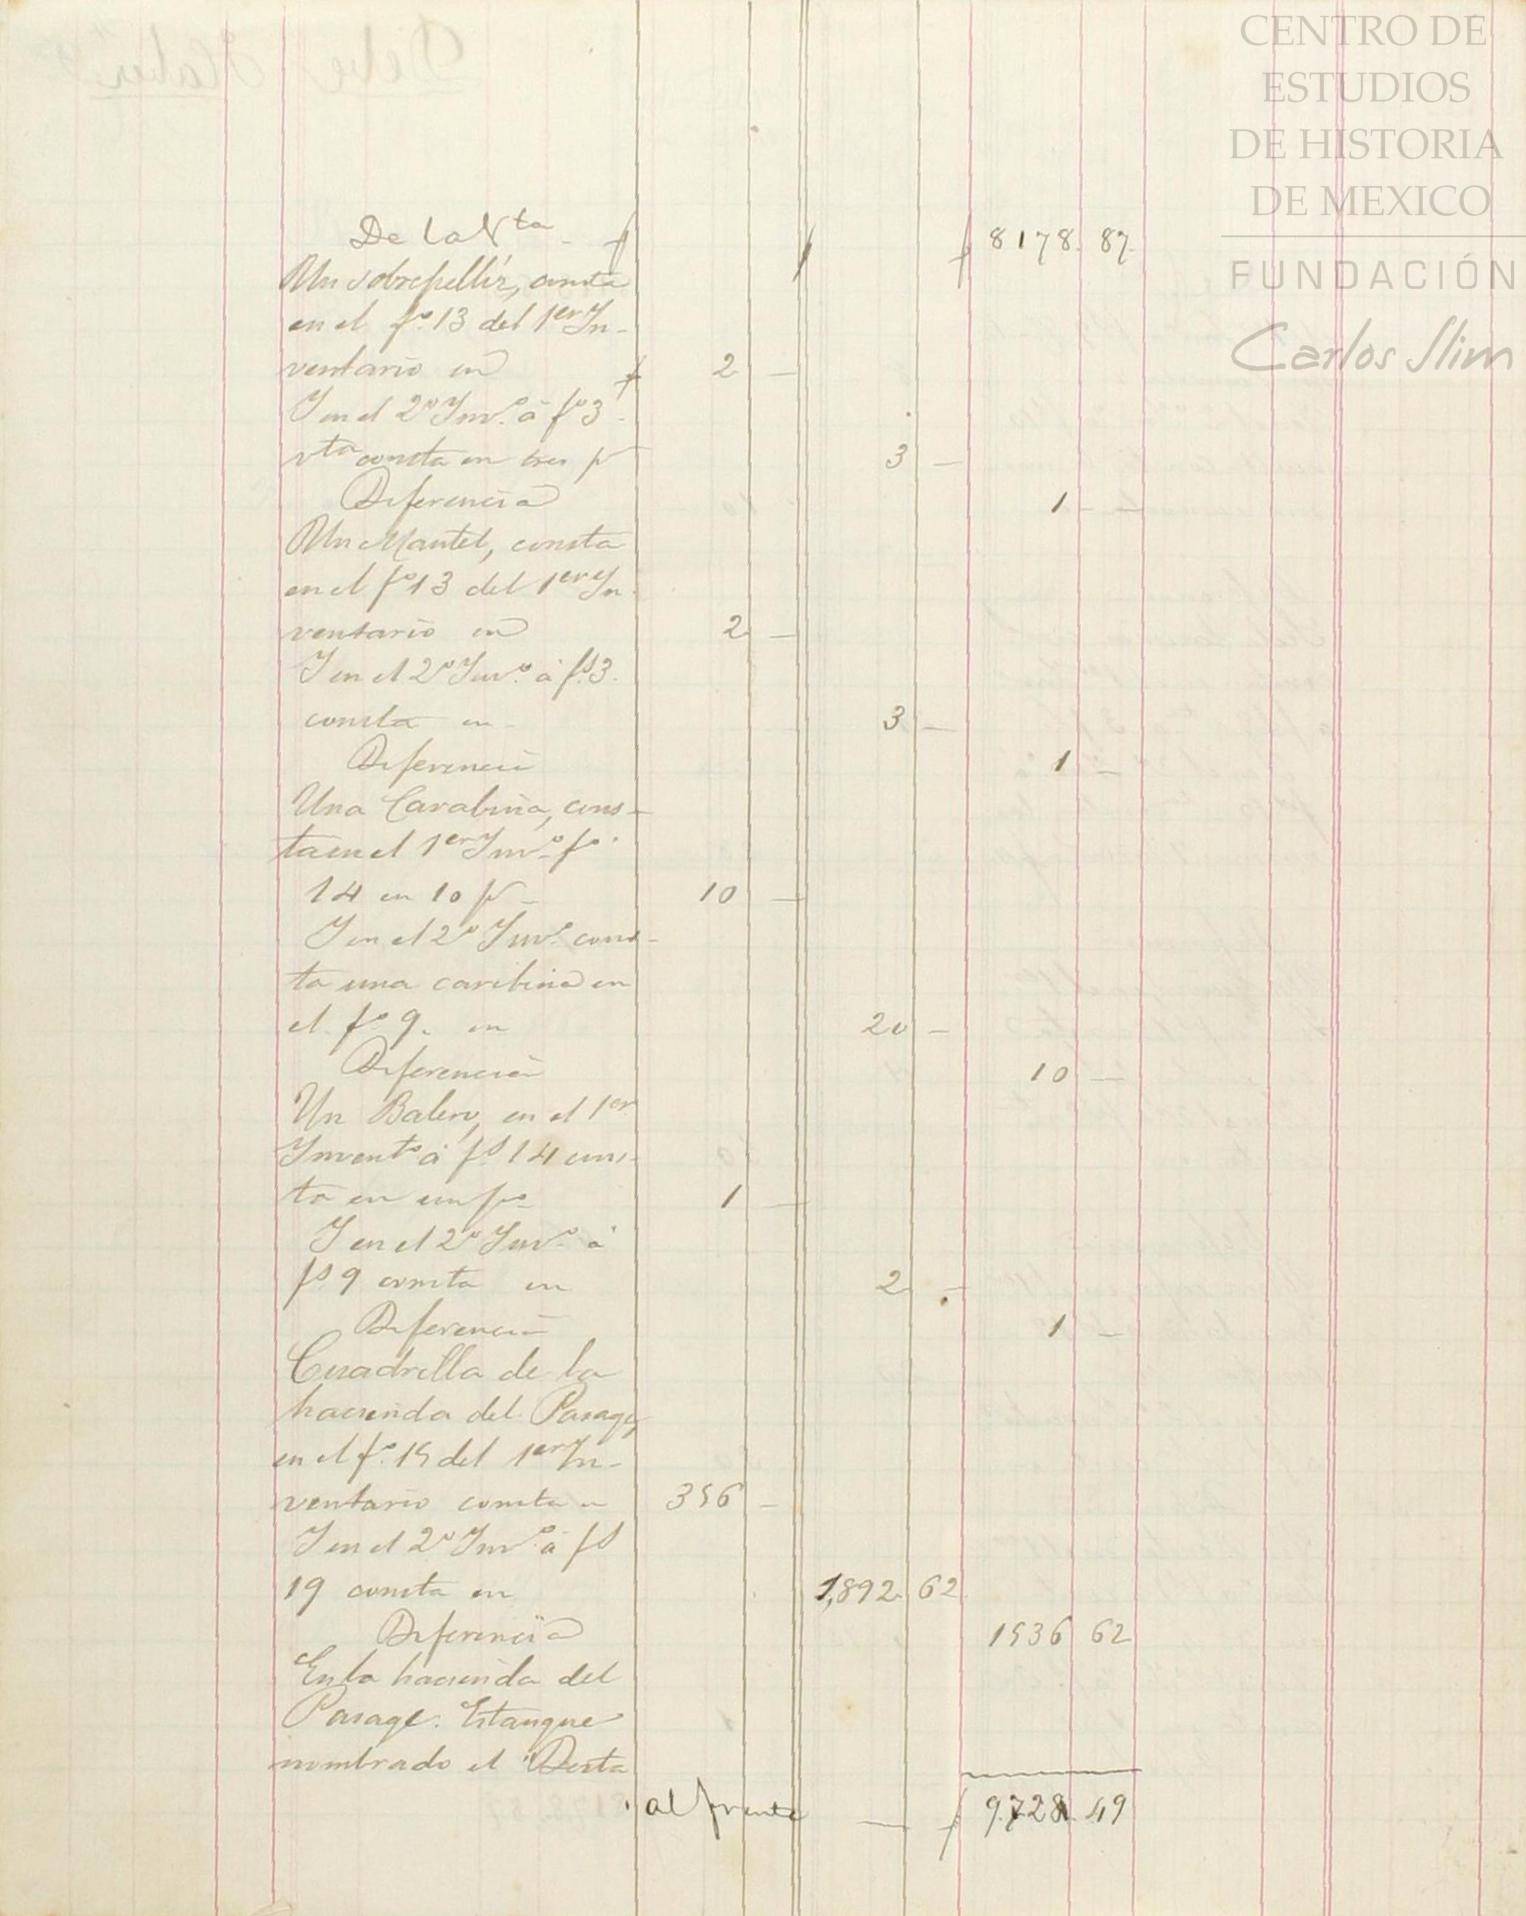 CENTRO DE
ESTUDIOS
DE HISTORIA
DE MEXICO
FUNDACIÓN
Carlos Slim
Debe Haber
De la Vta $ $ 8178 87
Un sobrepelliz, consta
en el fo. 13 del 1er In-
ventario en $ 2 —
Y en el 2o Invo. á fo 3
vta consta en tres ps 3 —
Diferencia 1 — —
Un Mantel, consta
en el fo 13 del 1er In-
ventario en 2 —
Y en el 2o Invo. á fs. 3.
consta en 3 —
Diferencia 1 —
Una Carabina, cons-
ta en el 1er Invo. fo.
14 en 10 ps — 10 —
Y en el 2o Invo. cons-
ta una caribina en
el fo 9. en 20 —
Diferencia 10 —
Un Balero, en el 1er
Invento á fs. 14 cons-
ta en un pso 1 —
Y en el 2o Invo. á
fs 9 consta en 2 —
Diferencia 1 —
Cuadrilla de la
hacienda del Pasage,
en el fo. 15 del 1er In-
ventario consta en 356 —
Y en el 2o Invo. á fs
19 consta en 1,892 62
Diferencia 1536 62
En la hacienda del
Pasage. Estanque
nombrado el "Desta
al frente — $ 9.728 49